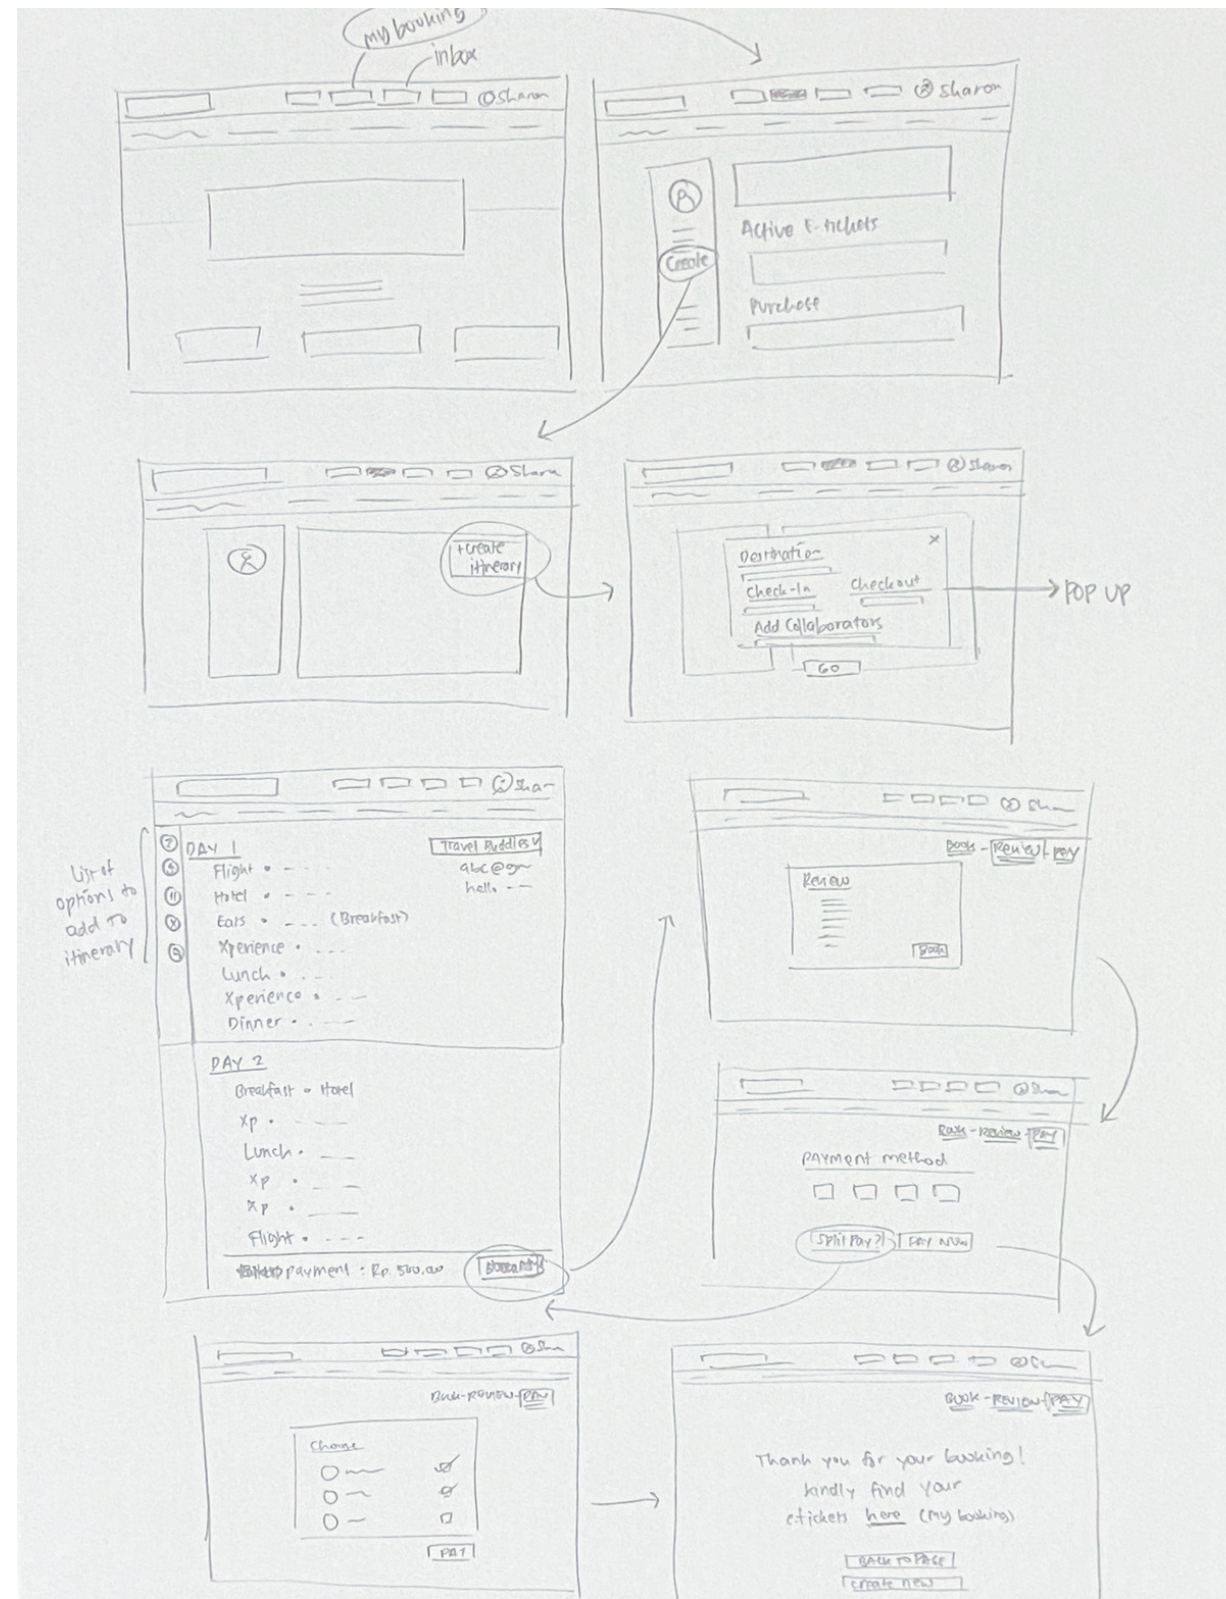 my booking
inbox
Sharon
Sharon
Active E-tickets
Create
Purchase
Sharon
+Create
itinerary
Sharon
Destination
Check-In
Checkout
Add Collaborators
GO
POP UP
Sha
List of
options to
add to
itinerary
DAY 1
Travel Buddies
Flight • - - - -
abc@gm
Hotel • - - - -
hello - -
Eats • - - - (Breakfast)
Xperience • - - -
Lunch • - - -
Xperience • - -
Dinner • - - -
DAY 2
Breakfast • Hotel
Xp • - - -
Lunch • - -
Xp • - - -
Xp • - - -
Flight • - - -
payment : Rp. 500.00
Sha
Book - Review - Pay
Review
Book
Sha
Book - Review - PAY
PAYMENT method
Split Pay?
PAY NOW
Sha
Book - REVIEW - PAY
Choose
PAY
BOOK - REVIEW - PAY
Thank you for your booking!
kindly find your
etickets here (my booking)
BACK TO PAGE
create new